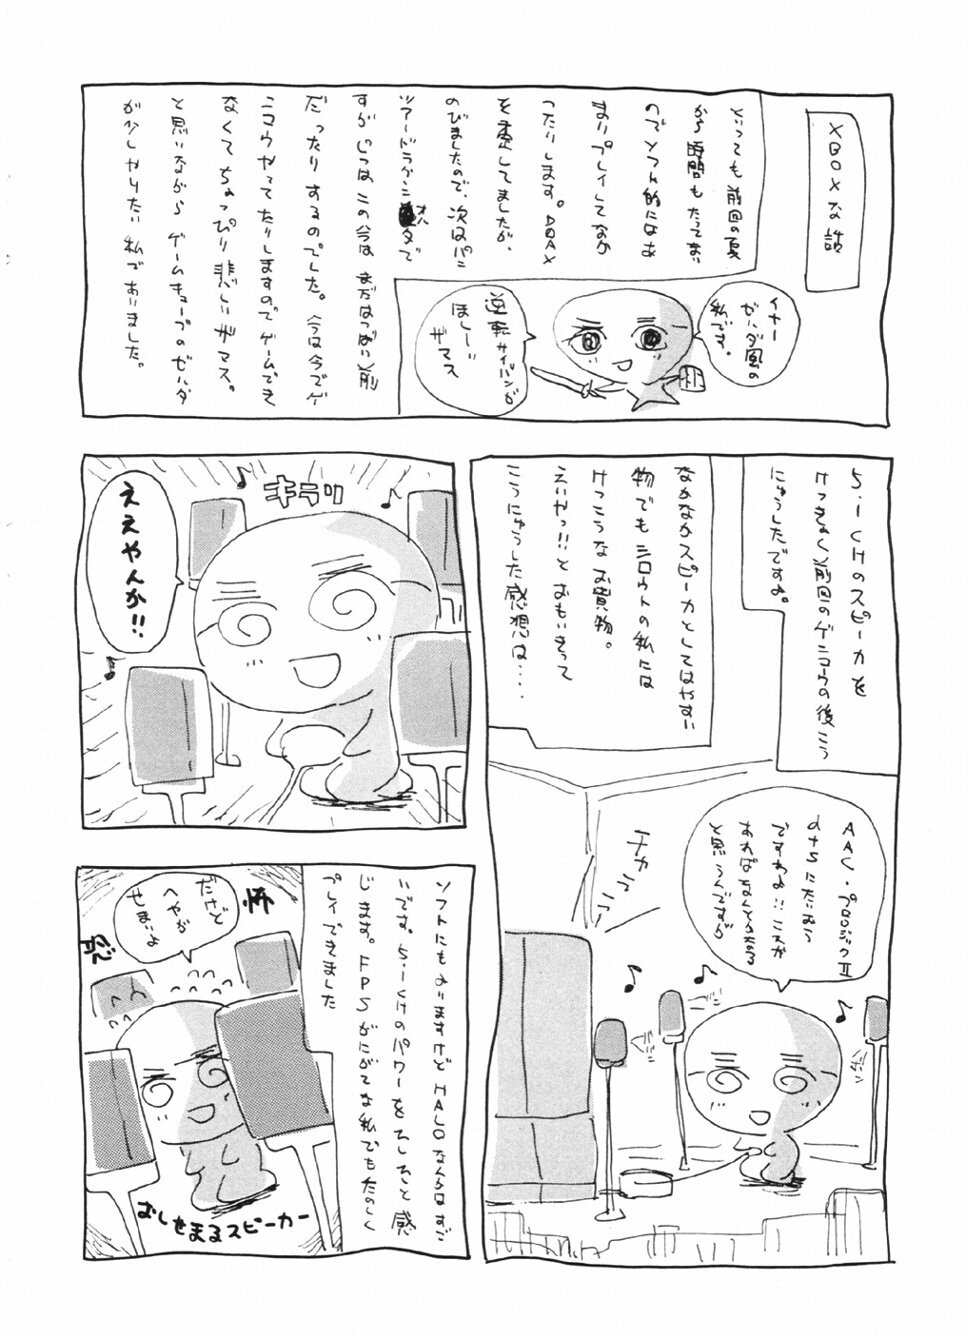 XBOXな話
といっても前回の夏
から時間もたってまい
のでソフト的にはあ
まりプレイしてなか
ったりします。DOAX
を楽してましたが、
のびましたので、次はパン
ツァードラグーンオルタで
すがじつはこの今は まだはつばい前
だったりするのでした。今は今でゲ
ンコウやってたりしますのでゲームできて
なくてちょっぴり悲しいザマス。
と思いながら ゲームキューブのゼルダ
が少しやりたい 私でありました。
イヤー
ゼルダ風の
私です。
逆転サイバンが
ほしーい
ザマス
5.1CHのスピーカを
けっきょく前回のゲンコウの後こう
にゅうしたですよ。
なかなかスピーカとしてはやすい
物でもシロウトの私には
けっこうなお買物。
えいやっ!!とおもいきって
こうにゅうした感想は・・・・
AAC・プロロジックⅡ
ですわよ!!これが
あればなんとかなる
と思うんですが
♪
♪
♪
キラリ
♪
♪
♪
ええやんか!!
ソフトにもよりますけどHALOなんかはすご
いです。5.1CHのパワーをひしひしと感
じます。FPSがにがてな私でもたのしく
プレイできました
だけど
へやが
せまいよ
怖
恐
おしせまるスピーカー